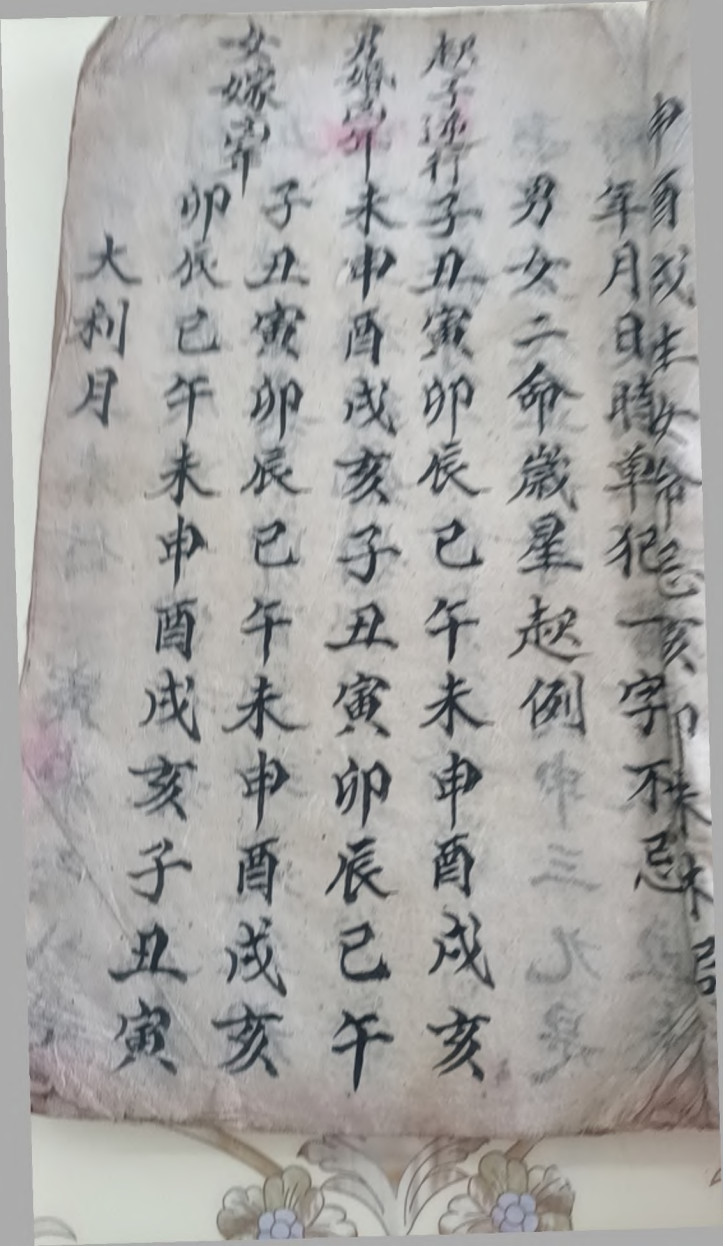 申酉戌生女命忌亥卯未
年月日時單犯一字不忌
男女二命歲星起例
起子逆行子丑寅卯辰巳午未申酉戌亥
男婚
未申酉戌亥子丑寅卯辰巳午
女嫁
子丑寅卯辰巳午未申酉戌亥
卯辰巳午未申酉戌亥子丑寅
大利月